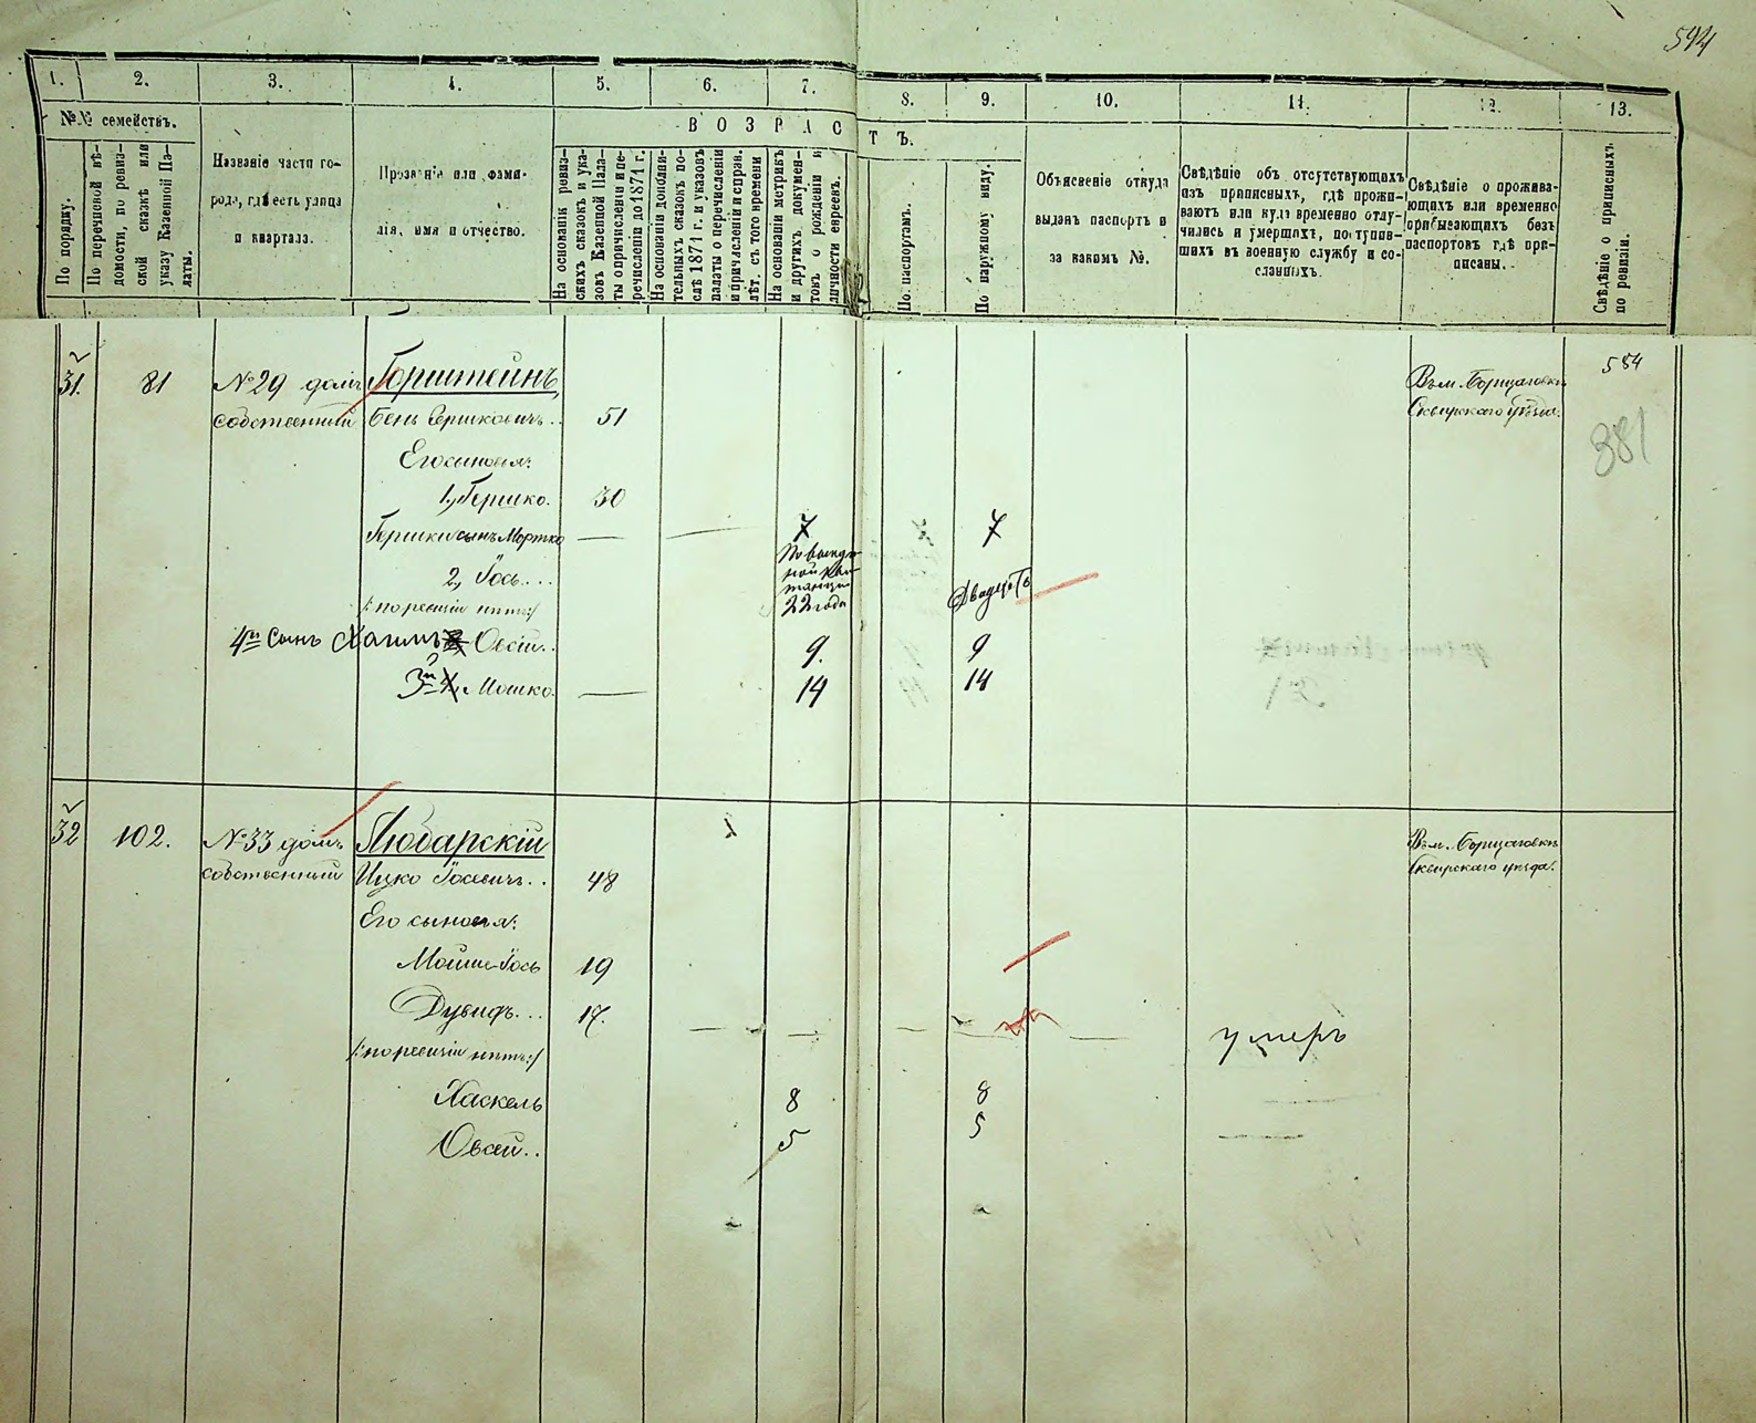 594
1. 2. 3. 4. 5. 6. 7. 8. 9. 10. 11. 12. 13.
№№ семействъ.
По порядку.
По перечневой вѣ-
домости, по ревиз-
ской сказкѣ или
указу Казенной Па-
латы.
Названіе части го-
рода, гдѣ есть улица
и квартала.
Прозваніе или фами-
лія, имя и отчество.
ВОЗРАСТЪ.
На основаніи ревиз-
скихъ сказокъ и ука-
зовъ Казенной Пала-
ты о причисленіи и пе-
речисленіи до 1871 г.
На основаніи дополни-
тельныхъ сказокъ по-
слѣ 1871 г. и указовъ
палаты о перечисленіи
и причисленіи и справ.
лѣт. съ того времени
На основаніи метрикъ
и другихъ докумен-
товъ о рожденіи и
личности евреевъ.
По паспортамъ.
По наружному виду.
Объясненіе откуда
выданъ паспортъ и
за какимъ №.
Свѣдѣніе объ отсутствующихъ
изъ приписныхъ, гдѣ прожи-
ваютъ или куда временно отлу-
чились и умершихъ, поступив-
шихъ въ военную службу и со-
сланныхъ.
Свѣдѣніе о прожива-
ющихъ или временно
прибывающихъ безъ
паспортовъ гдѣ при-
писаны.
Свѣдѣніе о приписныхъ
по ревизіи.
31. 81 №29 домъ Горштейнъ, Въ м. Борщаговкѣ 584
собственный Бень Гершковичъ.. 51 Сквирскаго уѣзда.
381
Его сыновья:
1., Гершко. 30
Гершки сынъ Мортко — — 7 7
2., Іось... 22 года Двадцать
/:по ревизіи нѣтъ:/
4й Сынъ Хаимъ Овсій.. 9. 9
3й Мошко. — 14 14
32 102. №33 домъ Любарскій Въ м. Борщаговкѣ
собственный Ицко Іосевичъ.. 48 Сквирскаго уѣзда.
Его сыновья:
Мойше-Іось 19
Дувидъ... 17. — — — — — умеръ
/:по ревизіи нѣтъ:/
Хаскель 8 8
Овсей.. 5 5